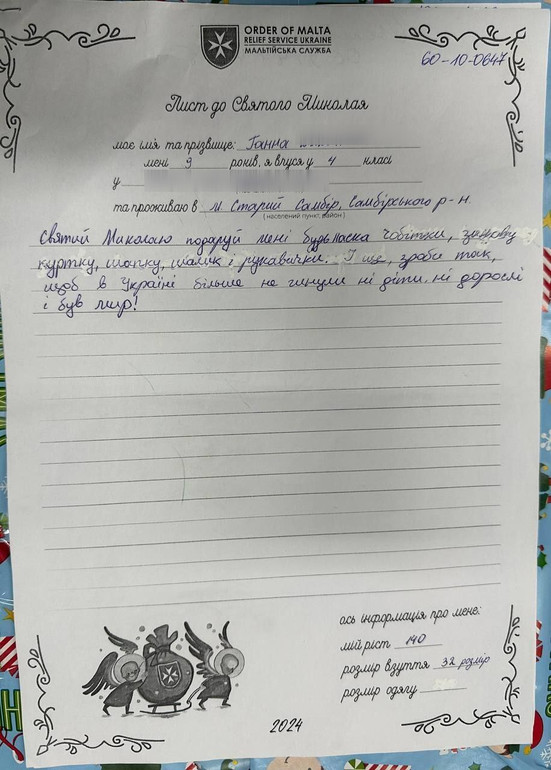 ORDER OF MALTA
RELIEF SERVICE UKRAINE
МАЛЬТІЙСЬКА СЛУЖБА
60-10-0647
Лист до Святого Миколая
моє імя та прізвище: Ганна
мені 9 років, я вчуся у 4 класі
у
та проживаю в м Старий Самбір, Самбірського р-н.
(населений пункт, район)
Святий Миколаю подаруй мені будьласка чобітки, зимову
куртку, шапку, шалик і рукавички. І ще, зроби так,
щоб в Україні більше не гинули ні діти, ні дорослі
і був мир!
ось інформація про мене:
мій ріст 140
розмір взуття 32 розмір
розмір одягу
2024